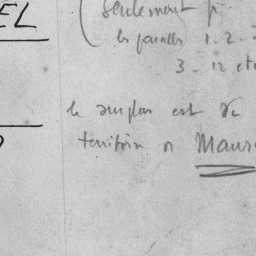 EL
(seulement p.
les parcelles 1. 2.
3 _ 12 et
le surplus est de
territoire